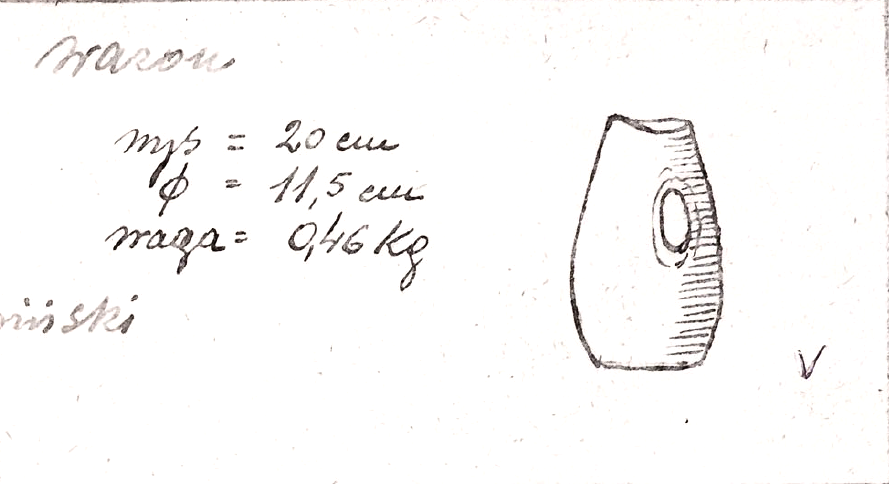 wazon
wys = 20 cm
ϕ = 11,5 cm
waga = 0,46 Kg
iński
V